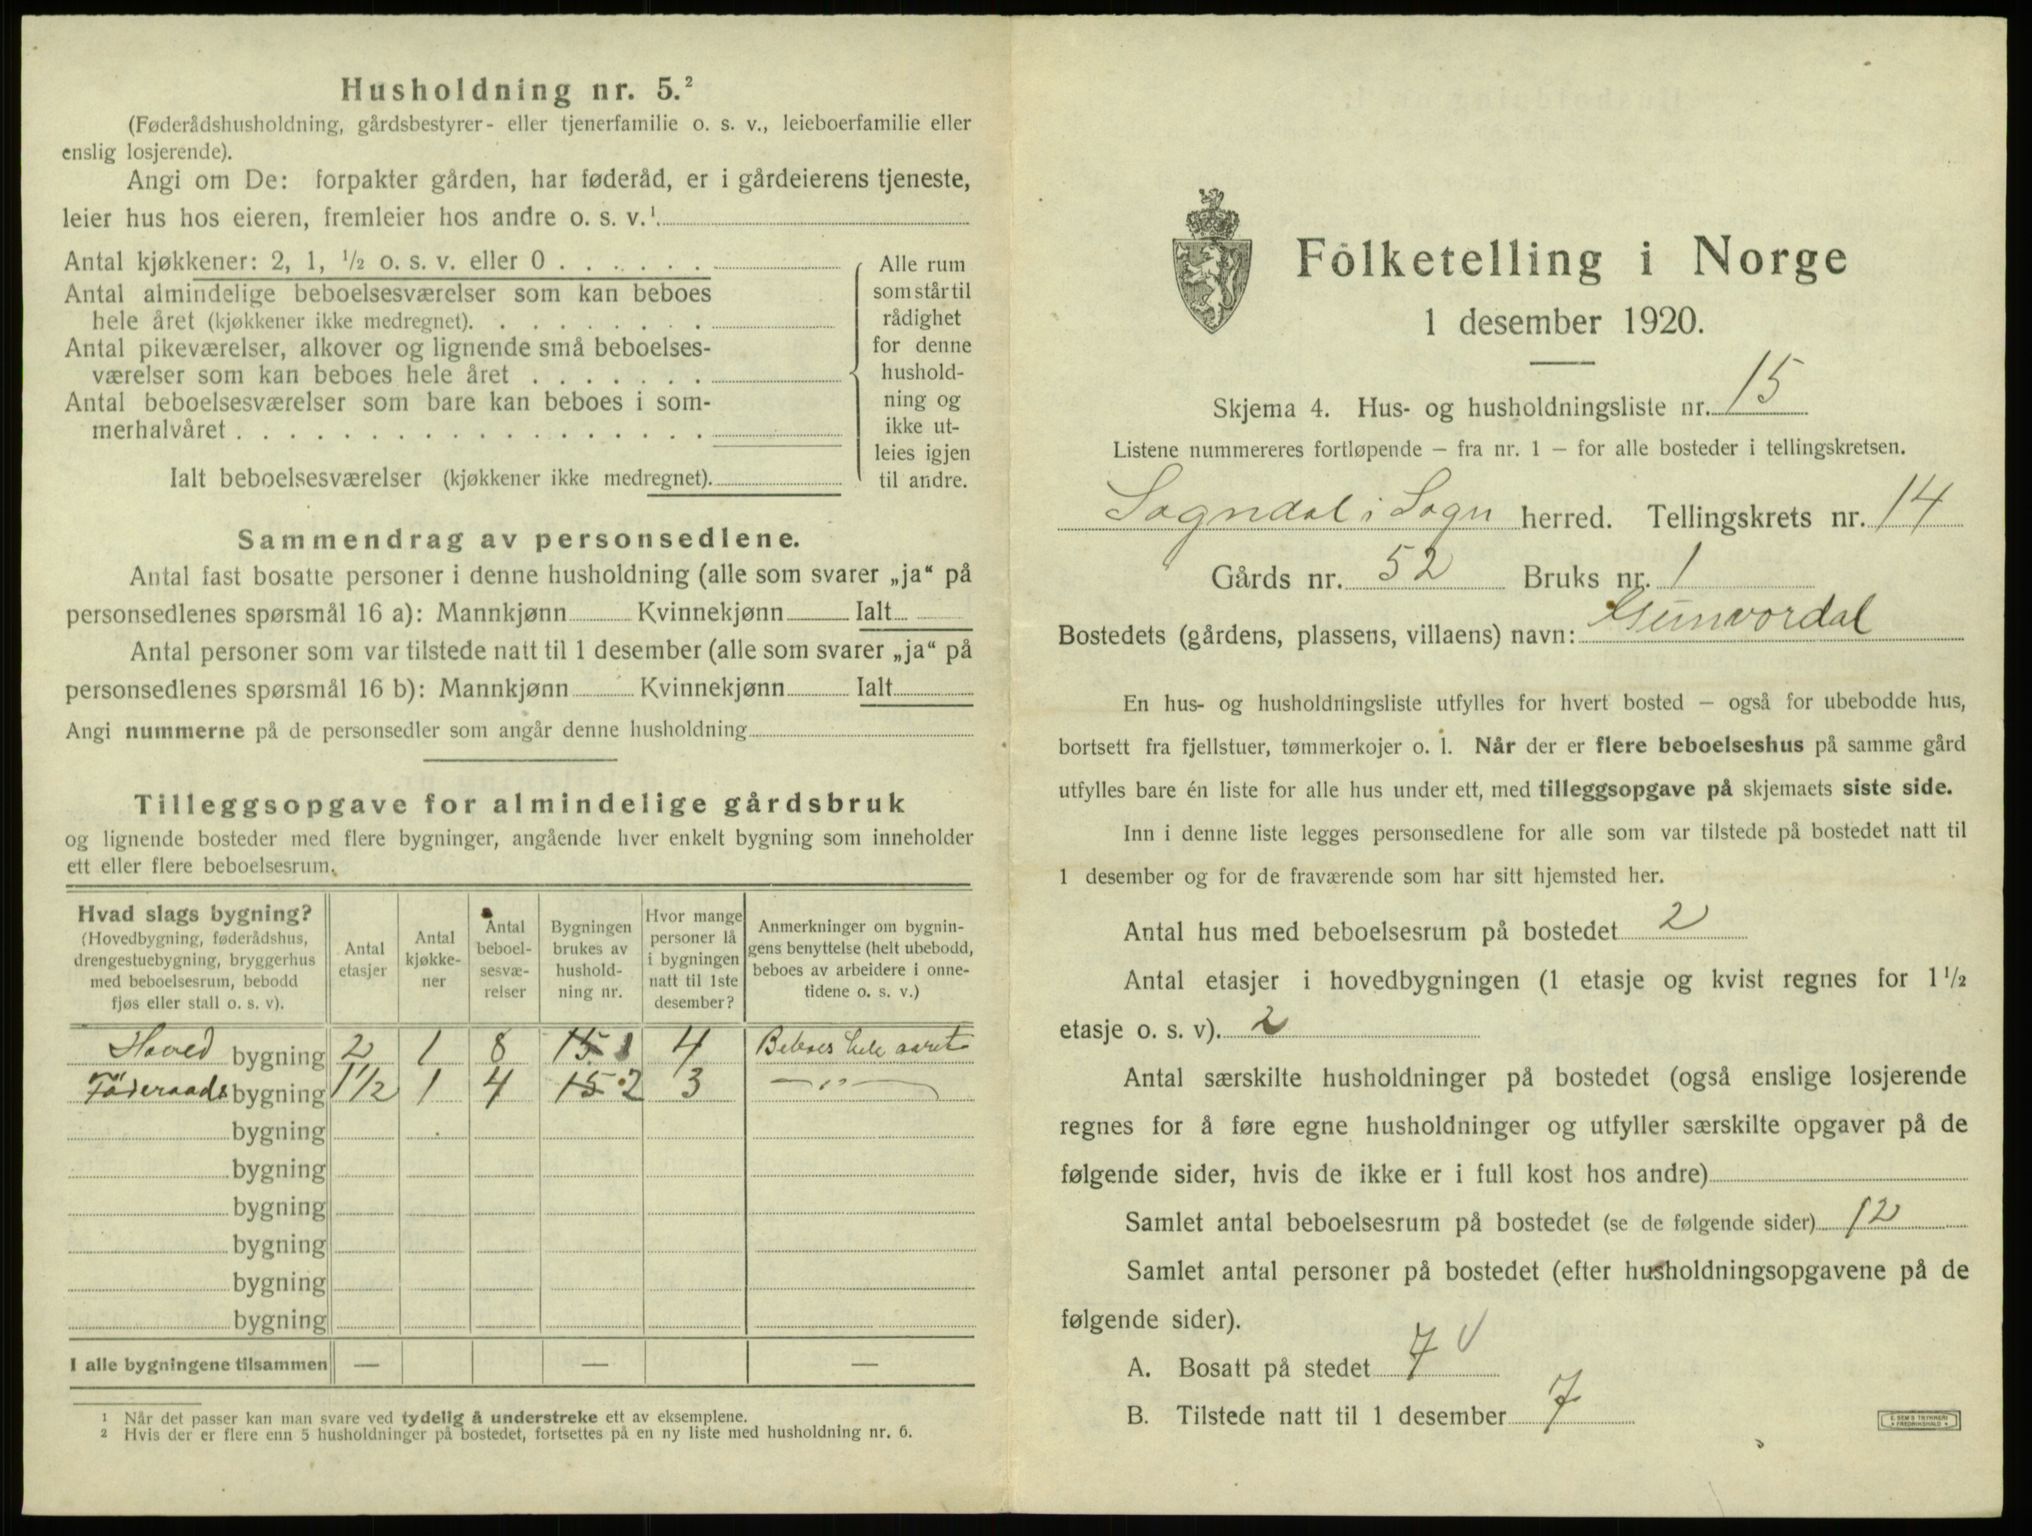 Husholdning nr. 5.²
(Føderådshusholdning, gårdsbestyrer- eller tjenerfamilie o. s. v., leieboerfamilie eller
enslig losjerende).
Angi om De: forpakter gården, har føderåd, er i gårdeierens tjeneste,
leier hus hos eieren, fremleier hos andre o. s. v.¹
Antal kjøkkener: 2, 1, ½ o. s. v. eller 0 . . . . . .
Antal almindelige beboelsesværelser som kan beboes
hele året (kjøkkener ikke medregnet). . . . . . . . .
Antal pikeværelser, alkover og lignende små beboelses-
værelser som kan beboes hele året . . . . . . .
Antal beboelsesværelser som bare kan beboes i som-
merhalvåret . . . . . . . . . . . . . . . . . .
Ialt beboelsesværelser (kjøkkener ikke medregnet).
Alle rum
som står til
rådighet
for denne
hushold-
ning og
ikke ut-
leies igjen
til andre.
Sammendrag av personsedlene.
Antal fast bosatte personer i denne husholdning (alle som svarer „ja“ på
personsedlenes spørsmål 16 a): Mannkjønn Kvinnekjønn Ialt
Antal personer som var tilstede natt til 1 desember (alle som svarer „ja“ på
personsedlenes spørsmål 16 b): Mannkjønn Kvinnekjønn Ialt
Angi nummerne på de personsedler som angår denne husholdning
Tilleggsopgave for almindelige gårdsbruk
og lignende bosteder med flere bygninger, angående hver enkelt bygning som inneholder
ett eller flere beboelsesrum.
Hvad slags bygning?
(Hovedbygning, føderådshus,
drengestuebygning, bryggerhus
med beboelsesrum, bebodd
fjøs eller stall o. s. v).
Antal
etasjer
Antal
kjøkke-
ner
Antal
beboel-
sesvæ-
relser
Bygningen
brukes av
hushold-
ning nr.
Hvor mange
personer lå
i bygningen
natt til 1ste
desember?
Anmerkninger om bygnin-
gens benyttelse (helt ubebodd,
beboes av arbeidere i onne-
tidene o. s. v.)
Hoved bygning 2 1 8 15 1 4 Beboes hele aaret
Föderaads bygning 1½ 1 4 15 2 3 — „ —
bygning
bygning
bygning
bygning
bygning
bygning
I alle bygningene tilsammen — — —
¹ Når det passer kan man svare ved tydelig å understreke ett av eksemplene.
² Hvis der er flere enn 5 husholdninger på bostedet, fortsettes på en ny liste med husholdning nr. 6.
Folketelling i Norge
1 desember 1920.
Skjema 4. Hus- og husholdningsliste nr. 15
Listene nummereres fortløpende – fra nr. 1 – for alle bosteder i tellingskretsen.
Sogndal i Sogn herred. Tellingskrets nr. 14
Gårds nr. 52 Bruks nr. 1
Bostedets (gårdens, plassens, villaens) navn: Gunvordal
En hus- og husholdningsliste utfylles for hvert bosted – også for ubebodde hus,
bortsett fra fjellstuer, tømmerkojer o. l. Når der er flere beboelseshus på samme gård
utfylles bare én liste for alle hus under ett, med tilleggsopgave på skjemaets siste side.
Inn i denne liste legges personsedlene for alle som var tilstede på bostedet natt til
1 desember og for de fraværende som har sitt hjemsted her.
Antal hus med beboelsesrum på bostedet 2
Antal etasjer i hovedbygningen (1 etasje og kvist regnes for 1½
etasje o. s. v). 2
Antal særskilte husholdninger på bostedet (også enslige losjerende
regnes for å føre egne husholdninger og utfyller særskilte opgaver på de
følgende sider, hvis de ikke er i full kost hos andre)
Samlet antal beboelsesrum på bostedet (se de følgende sider) 12
Samlet antal personer på bostedet (efter husholdningsopgavene på de
følgende sider).
A. Bosatt på stedet 7 √
B. Tilstede natt til 1 desember 7
E. SEM'S TRYKKERI
FREDRIKSHALD